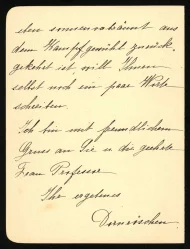 eben sonnenverbrannt aus
dem Kampfgewühl zurück-
gekehrt ist, will Ihnen
selbst noch ein paar Worte
schreiben.
Ich bin mit freundlichem
Gruss an Sie u die geehrte
Frau Professor
Ihr ergebenes